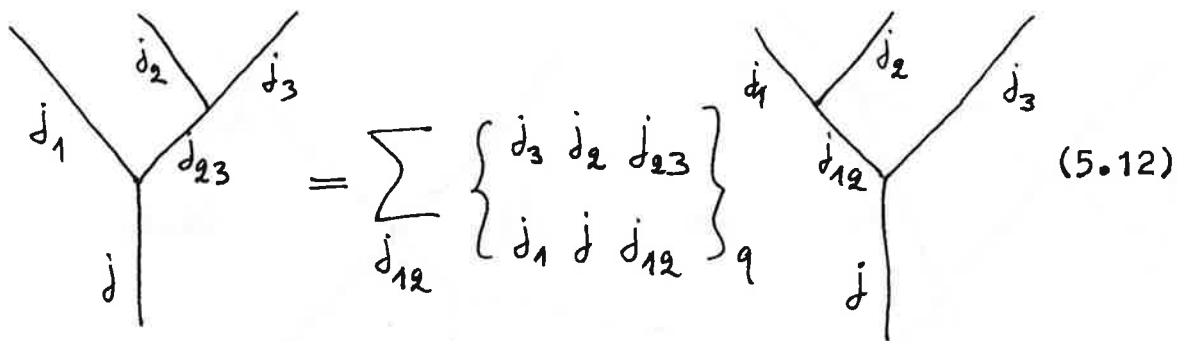 j₁ j₂ j₃
j₂₃
j
= ∑ j₁₂ { j₃ j₂ j₂₃
j₁ j j₁₂ } q
j₁ j₂ j₃
j₁₂
j
(5.12)